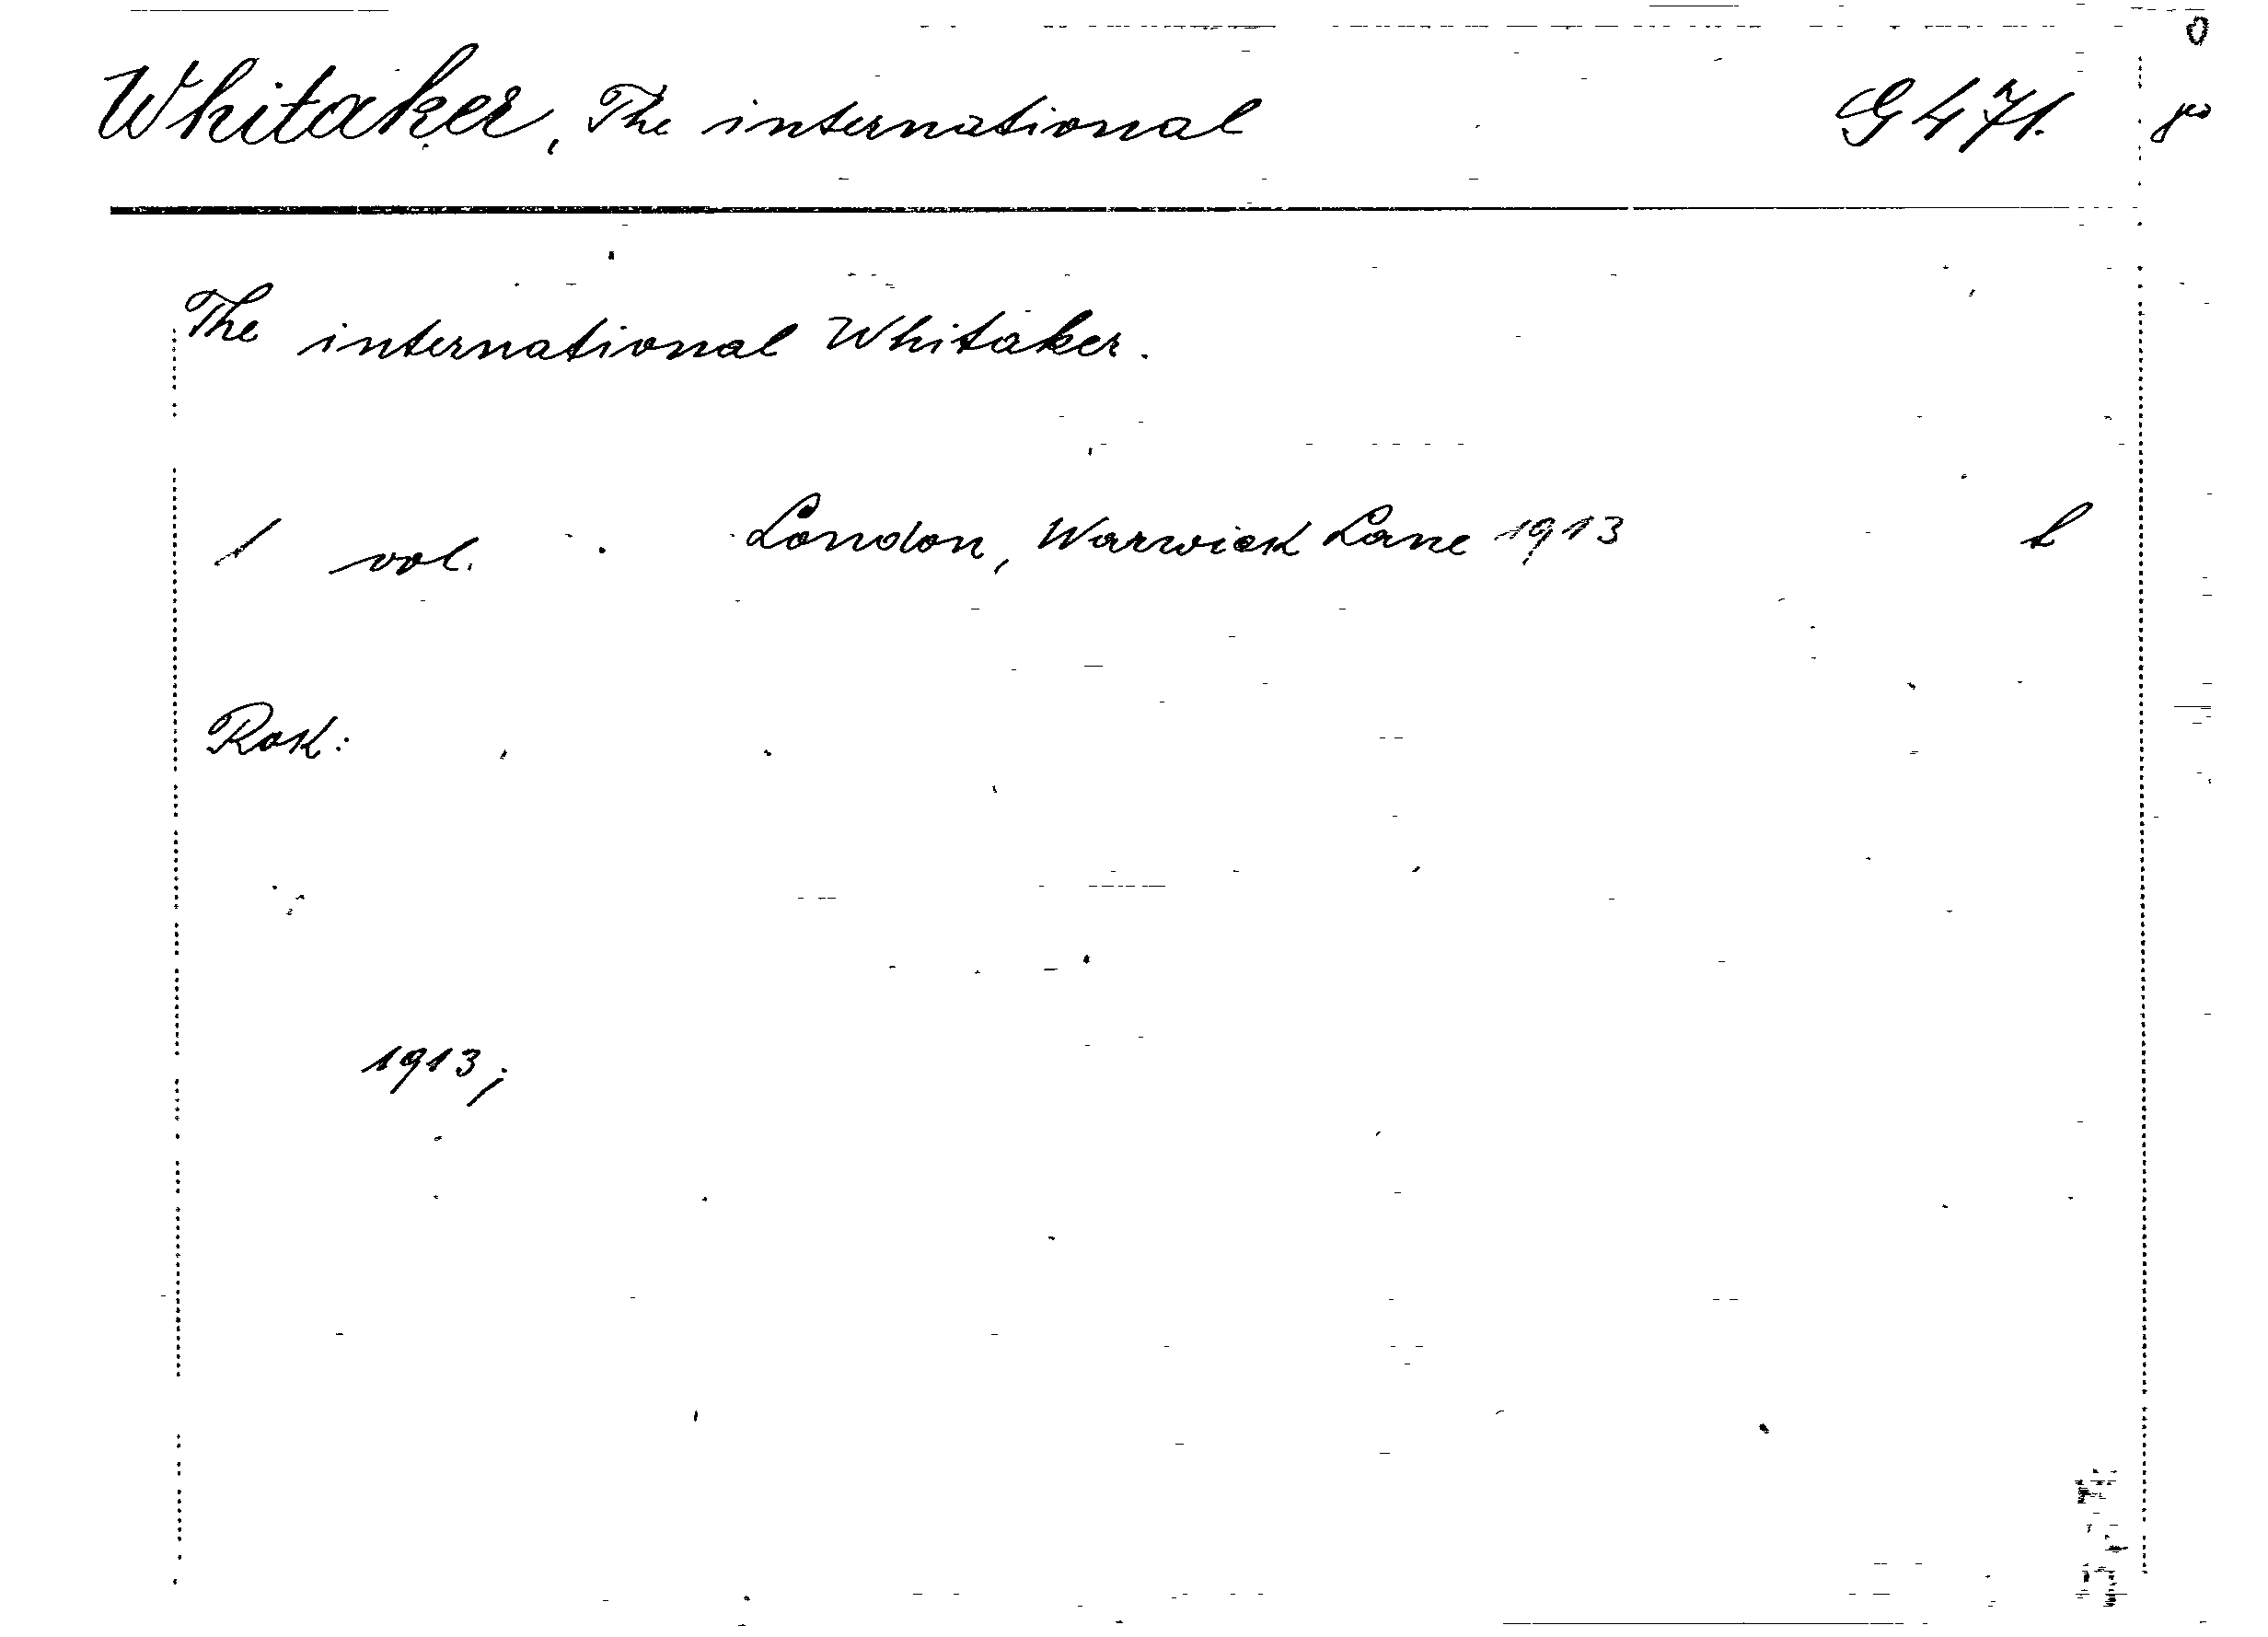 Whitaker, The international G 471.
The international Whitaker.
1 vol. London, Warwick Lane 1913 L
Rosk:
1913;